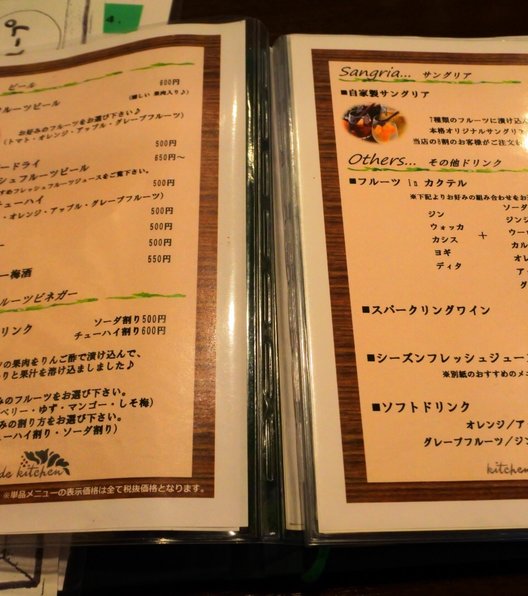 ビール
600円
ルーツビール
(嬉しい 果肉入り♪)
お好みのフルーツをお選び下さい♪
(トマト・オレンジ・アップル・グレープフルーツ)
500円
ードライ
650円~
シュフルーツビール
すめフレッシュフルーツジュースをご覧下さい。
ューハイ
500円
・オレンジ・アップル・グレープフルーツ)
500円
500円
ー
550円
ー梅酒
ルーツビネガー
リンク
ソーダ割り500円
チューハイ割り600円
ツの果肉をりんご酢で漬け込んで、
りと果汁を溶け込ましました♪
みのフルーツをお選び下さい。
ベリー・ゆず・マンゴー・しそ梅)
みの割り方をお選び下さい。
ューハイ割り・ソーダ割り)
de kitchen
※単品メニューの表示価格は全て税抜価格となります。
Sangria... サングリア
■自家製サングリア
7種類のフルーツに漬け込ん
本格オリジナルサングリ
当店の8割のお客様がご注文い
Others... その他ドリンク
■フルーツ in カクテル
※下記よりお好みの組み合わせをお
ジン
ウォッカ
カシス
ヨギ
ディタ
+
ソーダ
ジンジ
ウーロ
カル
オレ
ア
グ
■スパークリングワイン
■シーズンフレッシュジュース
※別紙のおすすめのメニ
■ソフトドリンク
オレンジ/ア
グレープフルーツ/ジン
kitchen